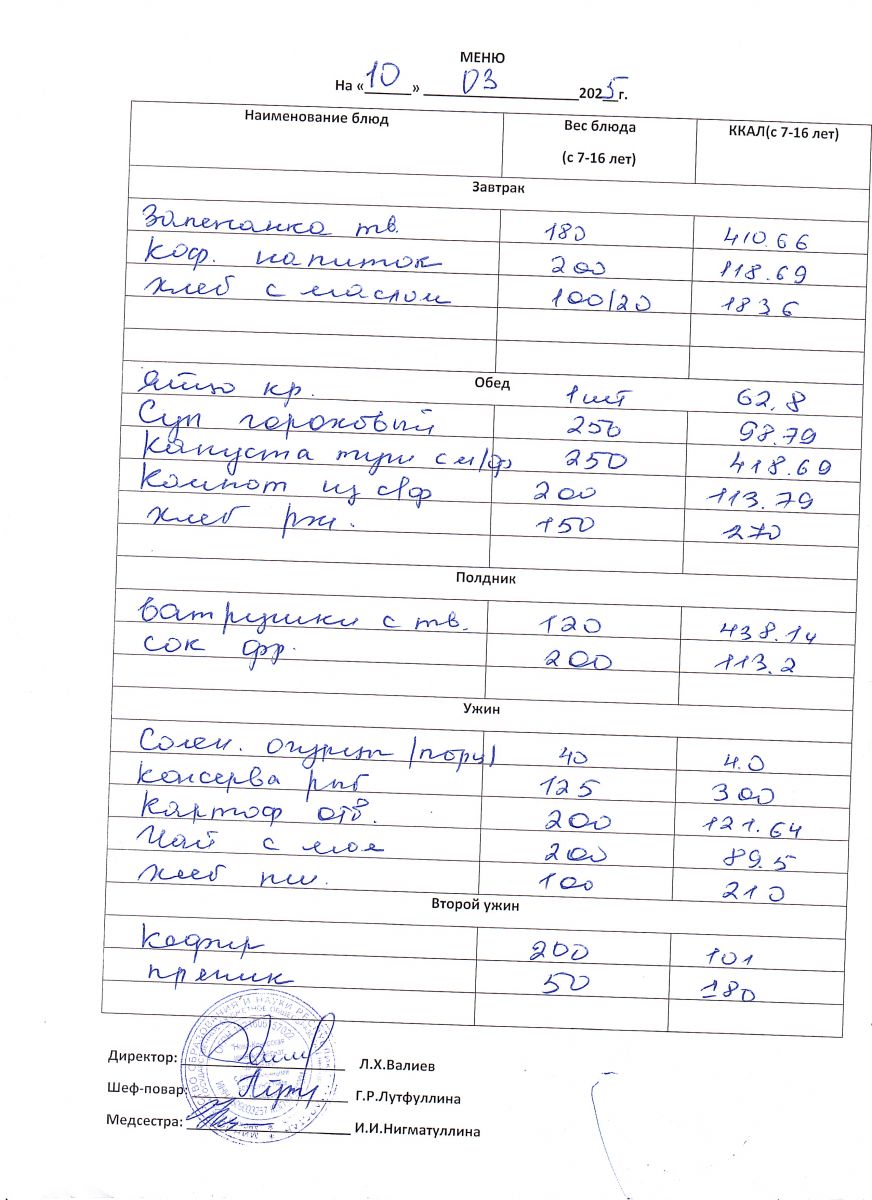 МЕНЮ
На «10» 03 2025 г.
Наименование блюд Вес блюда (с 7-16 лет) ККАЛ(с 7-16 лет)
Завтрак
Запеканка тв. 180 410.66
Коф. напиток 200 118.69
Хлеб с маслом 100/20 1836
Обед
Яйцо кр. 1шт 62,8
Суп гороховый 250 98.79
Капуста туш с м/ф 250 418.69
Компот из с/ф 200 113.79
Хлеб рж. 150 270
Полдник
Ватрушки с тв. 120 438.14
Сок фр. 200 113.2
Ужин
Солен. огурец (порц) 40 4.0
Консерва рыб 125 300
Картоф отв. 200 121.64
Чай с мол 200 89.5
Хлеб пш. 100 210
Второй ужин
Кефир 200 101
пряник 50 180
Директор: Л.Х.Валиев
Шеф-повар: Г.Р.Лутфуллина
Медсестра: И.И.Нигматуллина